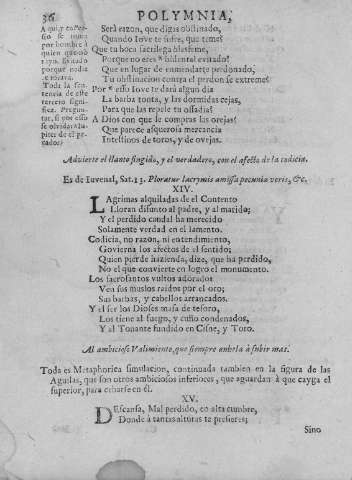 36
POLYMNIA,
Será razon, que digas obstinado,
Quando Iove te sufre, que temes
Que tu boca sacrilega blasfeme,
Porque no eres bidental evitado?
Que en lugar de enmendarte perdonado,
Tu obstinacion contra el perdon se extreme?
Por esso Iove te dará algun dia
La barba tonta, y las dormidas cejas,
Para que las repele tu ossadia?
A Dios con que le compras las orejas?
Que parece asquerosa mercancia
Intestinos de toros, y de ovejas.
Toda la sentencia de este
tercero signi-
fica. Pregun-
tar, si por esso
se olvida cas-
tigar de el pe-
cador)
Advierte el llanto fingido, y el verdadero, con el afecto de la codicia.
Es de Iuvenal, Sat. 13. Ploratur lacrymis amissa pecunia veris, &c.
XIV.
LAgrimas alquiladas de el Contento
Lloran difunto al padre, y al marido;
Y el perdido caudal ha merecido
Solamente verdad en el lamento.
Codicia, no razon, ni entendimiento,
Govierna los afectos de el sentido;
Quien pierde hazienda, dize, que ha perdido,
No el que convierte en logro el monumento.
Los sacrosantos vultos adorados
Ven sus muslos raidos por el oro;
Sus barbas, y cabellos arrancados.
Y al ser los Dioses masa de tesoro,
Los tiene al fuego, y cuño condenados,
Y al Tonante fundido en Cisne, y Toro.
Al ambicioso Valimiento, que siempre anhela à subir mas.
Toda es Metaphorica simulacion, continuada tambien en la figura de las
Aguilas, que son otros ambiciosos inferiores, que aguardan à que cayga el
superior, para cebarse en él.
XV.
DEscansa, Mal perdido, en alta cumbre,
Donde à tantas alturas te prefieres;
Sino